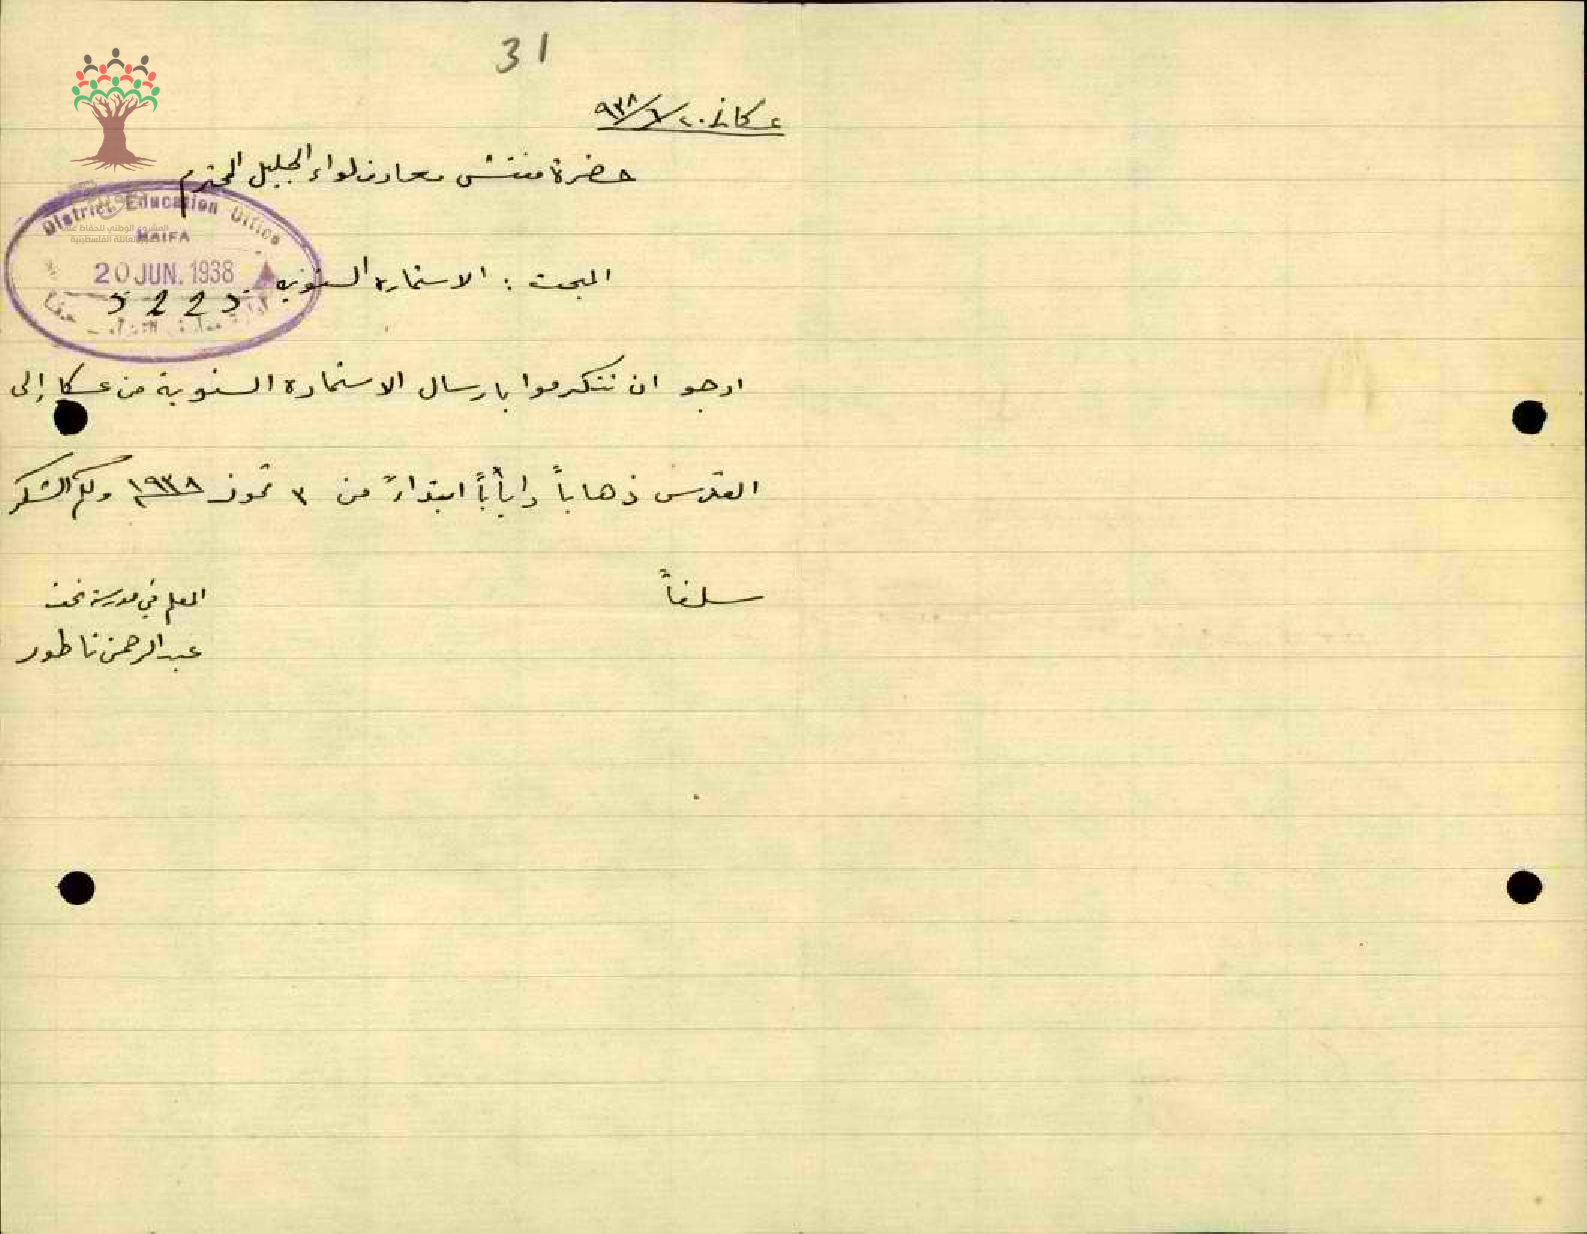 31
عكا في ٢٠/٦/٩٣٨
حضرة مفتش معارف لواء الجليل المحترم
District Education Office
HAIFA
20 JUN. 1938
المبحث : الاستمارة السنوية
ارجو ان تتكرموا بارسال الاستمارة السنوية من عكا إلى
القدس ذهاباً واياباً ابتداءً من ٣ تموز ١٩٣٨ ولكم الشكر
سلفاً
المعلم في مدرسة نحف
عبد الرحمن ناطور